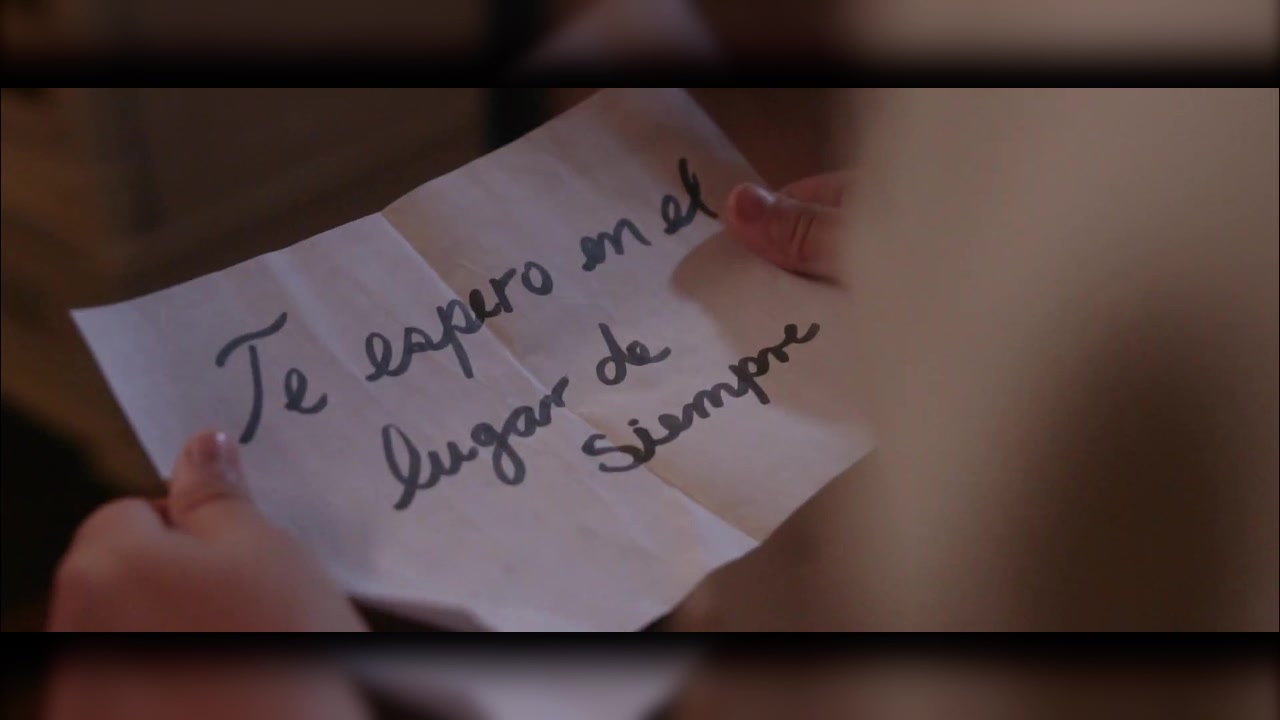 Te espero en el
lugar de
siempre